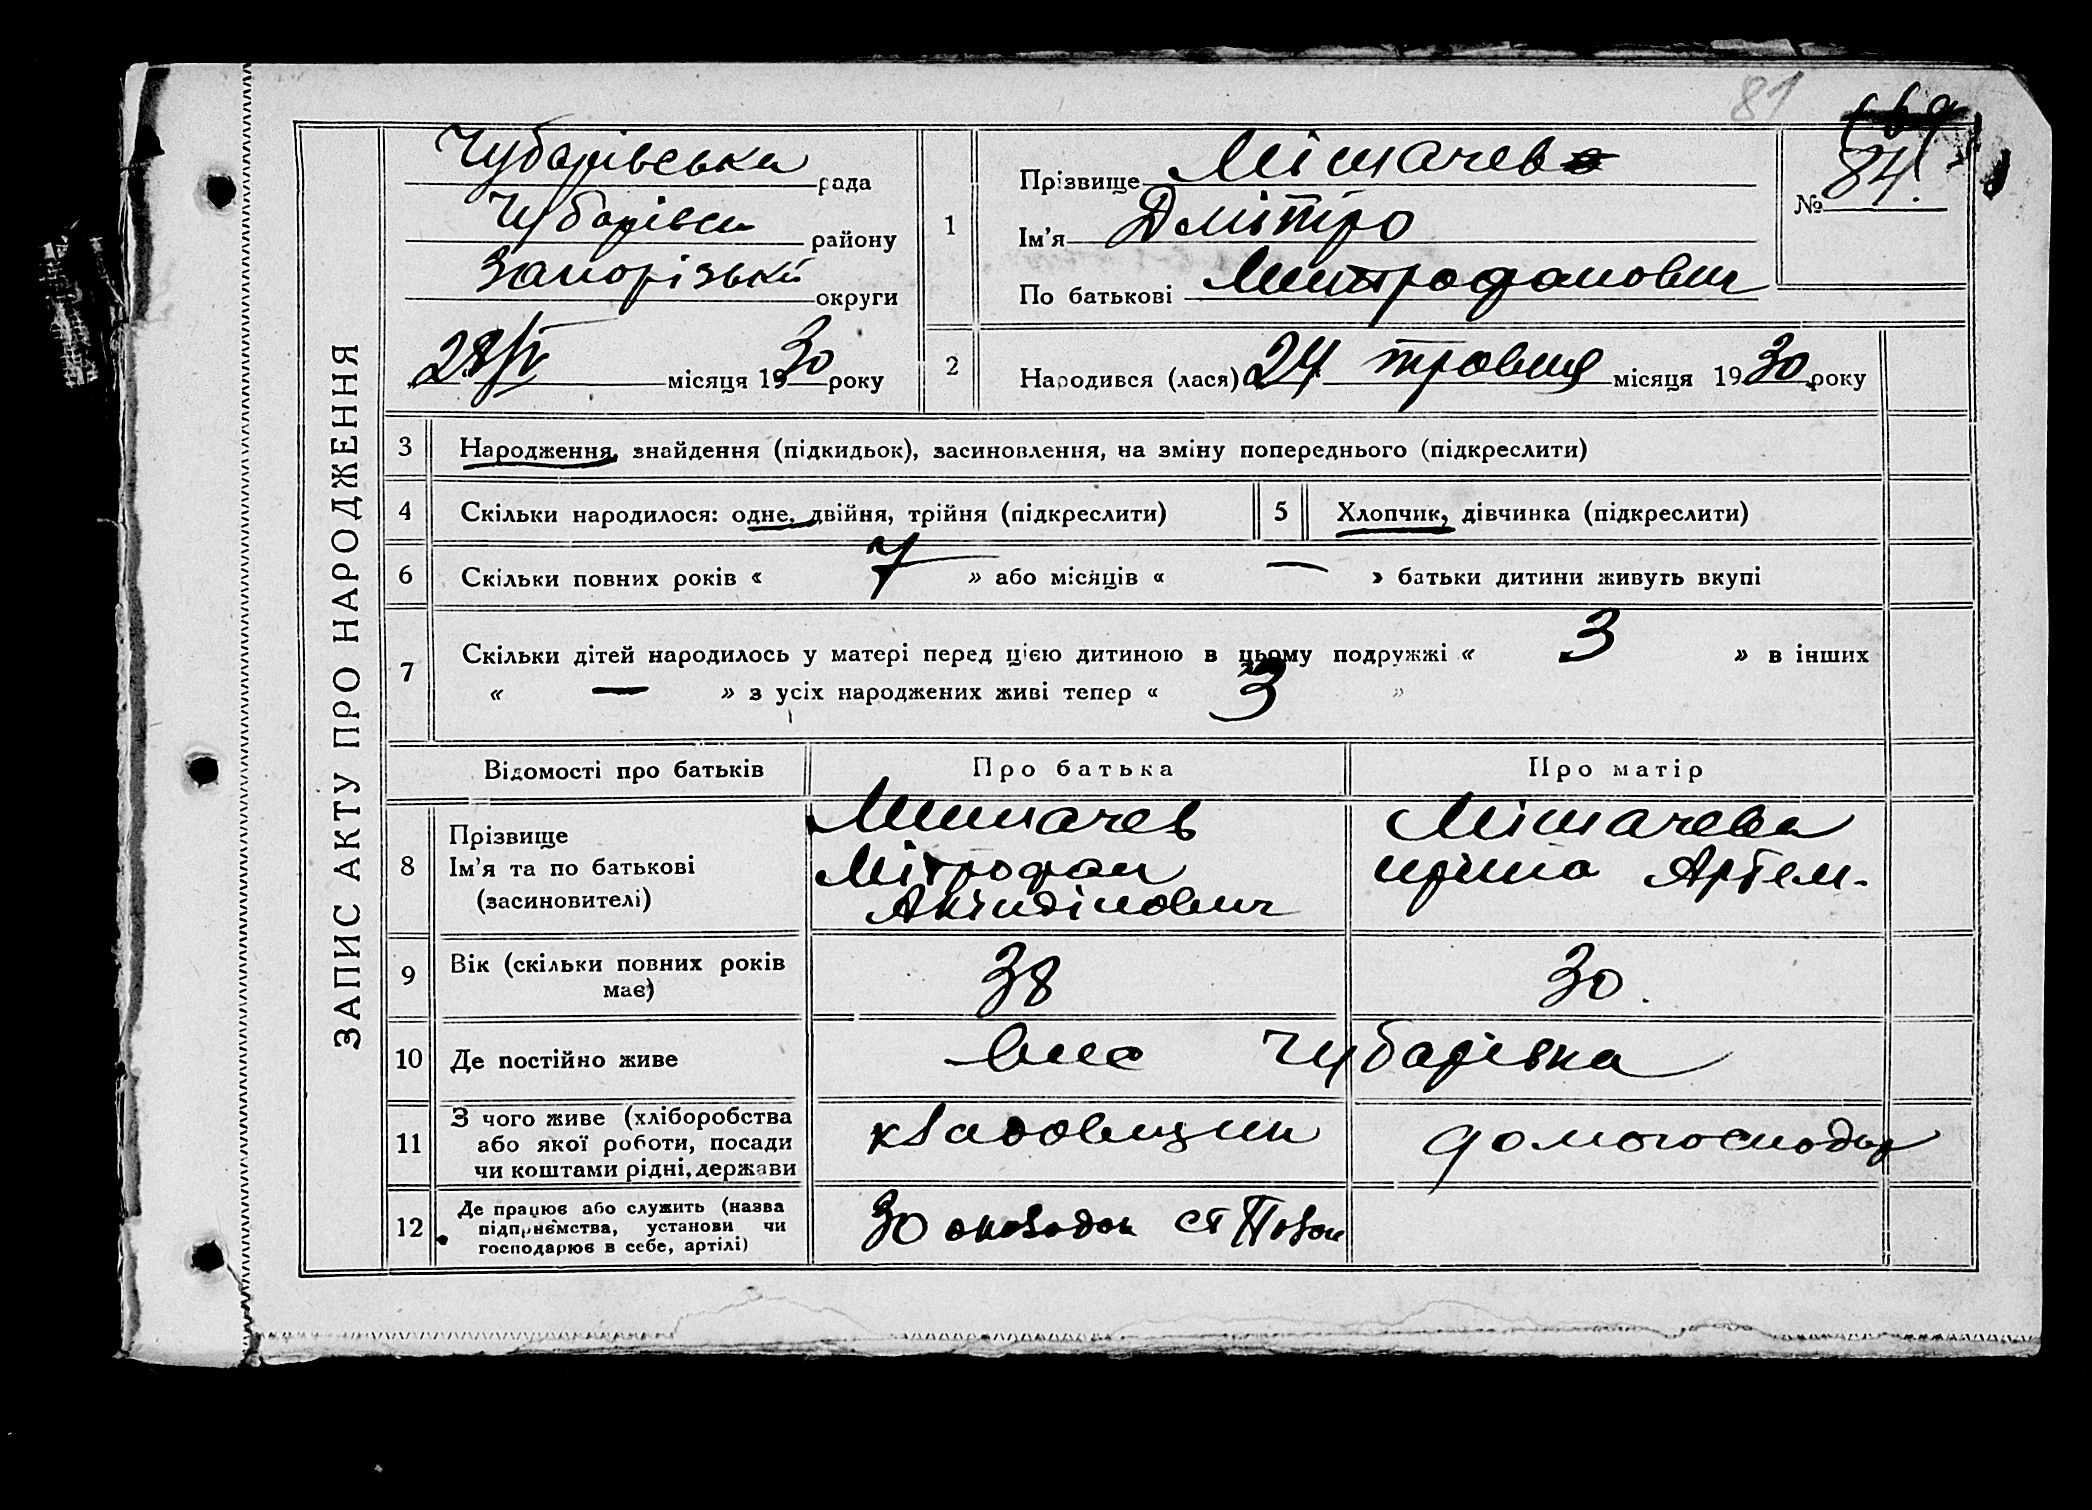 81
84.
ЗАПИС АКТУ ПРО НАРОДЖЕННЯ
Чубарівська рада
Чубарівськ району
Запорізької округи
28/V місяця 1930 року
1 Прізвище Мішачев
Ім’я Дмітро
По батькові Митрофанович
№ 84.
2 Народився (лася) 24 травня місяця 1930 року
3 Народження, знайдення (підкидьок), засиновлення, на зміну попереднього (підкреслити)
4 Скільки народилося: одне, двійня, трійня (підкреслити) 5 Хлопчик, дівчинка (підкреслити)
6 Скільки повних років « 7 » або місяців « — » батьки дитини живуть вкупі
7 Скільки дітей народилось у матері перед цією дитиною в цьому подружжі « 3 » в інших
« — » з усіх народжених живі тепер « 3 »
Відомості про батьків Про батька Про матір
8 Прізвище Мишачев Мішачева
Ім’я та по батькові Мітрофан Ирина Артем.
(засиновителі) Акіндінович
9 Вік (скільки повних років має) 38 30.
10 Де постійно живе Чубарівка
11 З чого живе (хліборобства
або якої роботи, посади
чи коштами рідні, держави
домогосподар
12 Де працює або служить (назва
підприємства, установи чи
господарює в себе, артілі)
30 ст